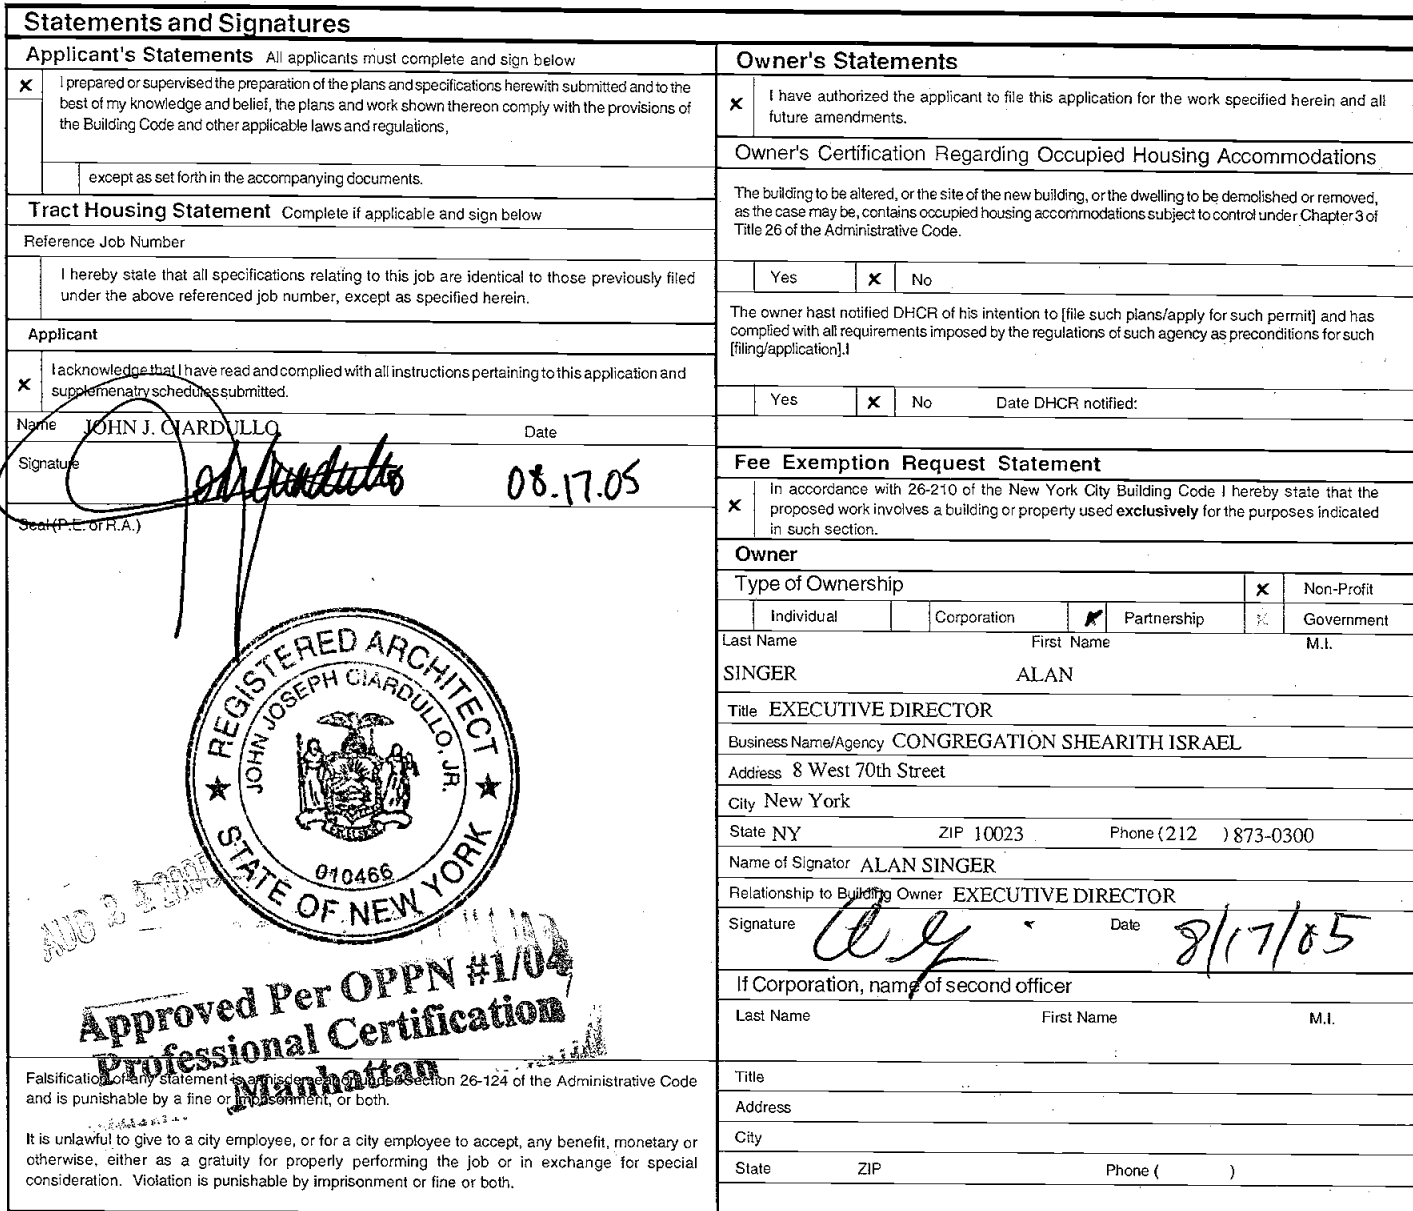 Statements and Signatures
Applicant's Statements All applicants must complete and sign below
x I prepared or supervised the preparation of the plans and specifications herewith submitted and to the
best of my knowledge and belief, the plans and work shown thereon comply with the provisions of
the Building Code and other applicable laws and regulations,
except as set forth in the accompanying documents.
Tract Housing Statement Complete if applicable and sign below
Reference Job Number
I hereby state that all specifications relating to this job are identical to those previously filed
under the above referenced job number, except as specified herein.
Applicant
x I acknowledge that I have read and complied with all instructions pertaining to this application and
supplemenatry schedules submitted.
Name JOHN J. CIARDULLO Date
Signature 08.17.05
Seal (P.E. or R.A.)
REGISTERED ARCHITECT
JOHN JOSEPH CIARDULLO, JR.
EXCELSIOR
010466
STATE OF NEW YORK
AUG 24 2005
Approved Per OPPN #1/04
Professional Certification
Manhattan
Falsification of any statement is a misdemeanor under Section 26-124 of the Administrative Code
and is punishable by a fine or imprisonment, or both.
It is unlawful to give to a city employee, or for a city employee to accept, any benefit, monetary or
otherwise, either as a gratuity for properly performing the job or in exchange for special
consideration. Violation is punishable by imprisonment or fine or both.
Owner's Statements
x I have authorized the applicant to file this application for the work specified herein and all
future amendments.
Owner's Certification Regarding Occupied Housing Accommodations
The building to be altered, or the site of the new building, or the dwelling to be demolished or removed,
as the case may be, contains occupied housing accommodations subject to control under Chapter 3 of
Title 26 of the Administrative Code.
Yes x No
The owner hast notified DHCR of his intention to [file such plans/apply for such permit] and has
complied with all requirements imposed by the regulations of such agency as preconditions for such
[filing/application].I
Yes x No Date DHCR notified:
Fee Exemption Request Statement
x In accordance with 26-210 of the New York City Building Code I hereby state that the
proposed work involves a building or property used exclusively for the purposes indicated
in such section.
Owner
Type of Ownership x Non-Profit
Individual Corporation Partnership x Government
Last Name First Name M.I.
SINGER ALAN
Title EXECUTIVE DIRECTOR
Business Name/Agency CONGREGATION SHEARITH ISRAEL
Address 8 West 70th Street
City New York
State NY ZIP 10023 Phone (212 ) 873-0300
Name of Signator ALAN SINGER
Relationship to Building Owner EXECUTIVE DIRECTOR
Signature Date 8/17/05
If Corporation, name of second officer
Last Name First Name M.I.
Title
Address
City
State ZIP Phone ( )